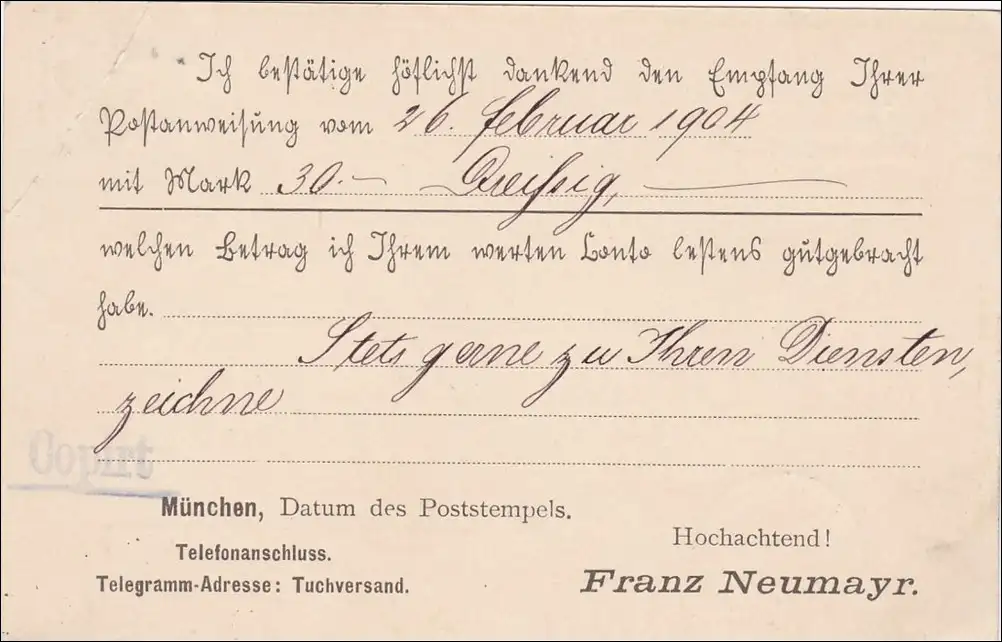 Ich bestätige höflichst dankend den Empfang Ihrer
Postanweisung vom 26. Februar 1904
mit Mark 30.— Dreissig,
welchen Betrag ich Ihrem werten Conto bestens gutgebracht
habe.
Stets gerne zu Ihren Diensten,
zeichne
Copirt
München, Datum des Poststempels.
Hochachtend!
Telefonanschluss.
Telegramm-Adresse: Tuchversand.
Franz Neumayr.